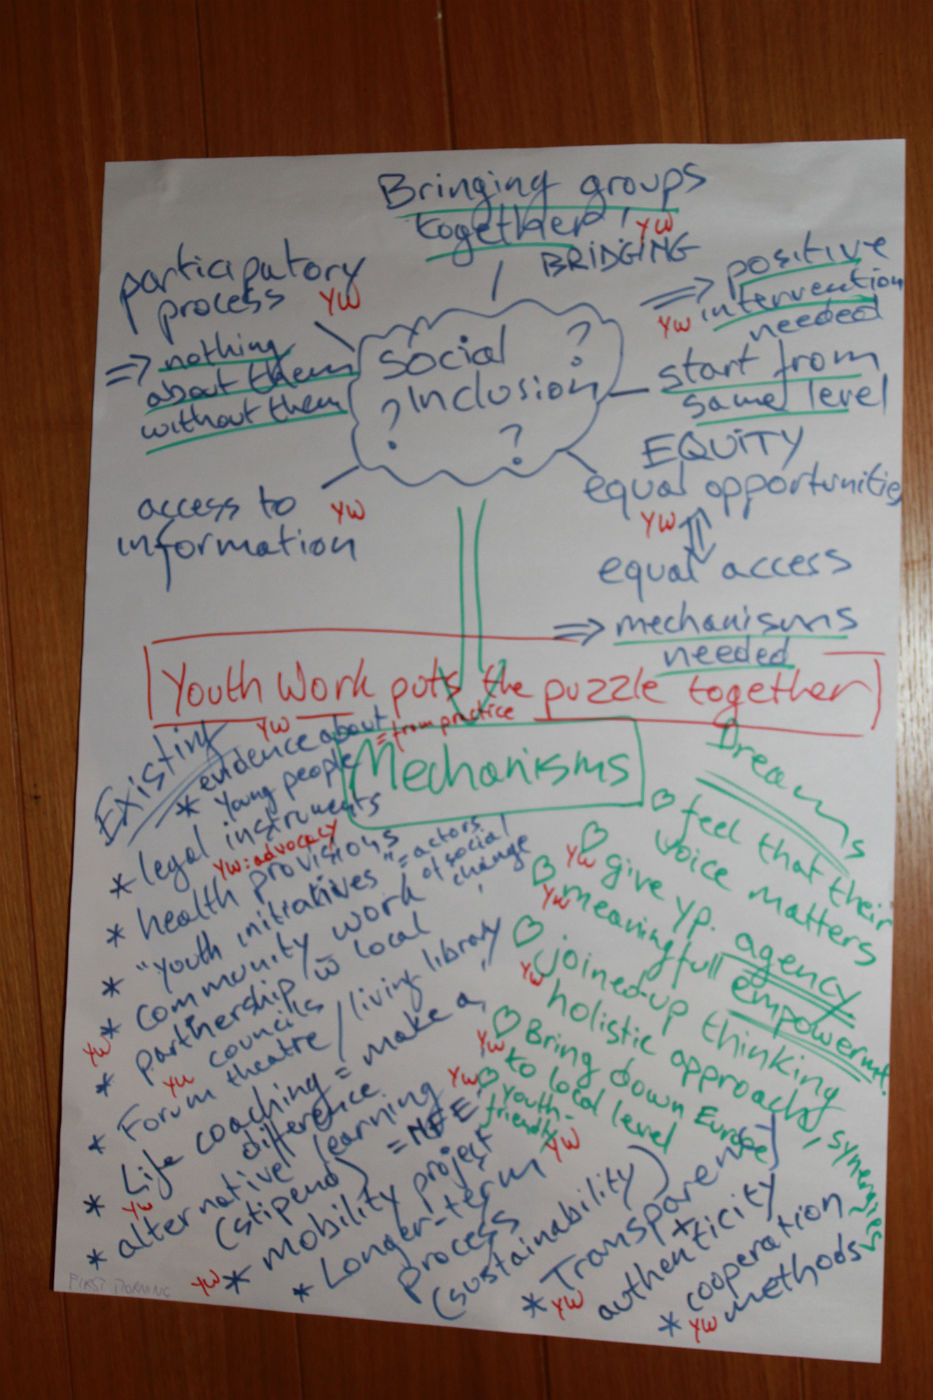 Bringing groups
together,
YW
BRIDGING
participatory
process YW
⇒ nothing
about them
without them
Social ?
Inclusion
? ?
⇒ positive
YW intervention
needed
start from
same level
EQUITY
equal opportunities
YW ⇕
equal access
⇒ mechanisms
needed
access to YW
information
Youth Work puts the puzzle together
Mechanisms
Existing
YW
* evidence about
young people = from practice
* legal instruments
YW: advocacy
* health provisions
* "youth initiatives" = actors
of social
change
* community work
YW
* partnership w local
YW councils
* Forum theatre / living library
* Life coaching = make a
YW difference
* alternative learning
(stipend) = NFE
YW * mobility project
* Longer-term
process
(sustainability)
* Transparency
YW +
authenticity
* cooperation
YW methods
Dreams
♡ feel that their
voice matters
♡ YW give yp. agency
♡ YW meaningfull empowermt.
♡ joined-up thinking
YW holistic approach, synergies
♡ Bring down Europe
YW to local level
YW ♡ youth-
friendly YW
FIRST MORNING